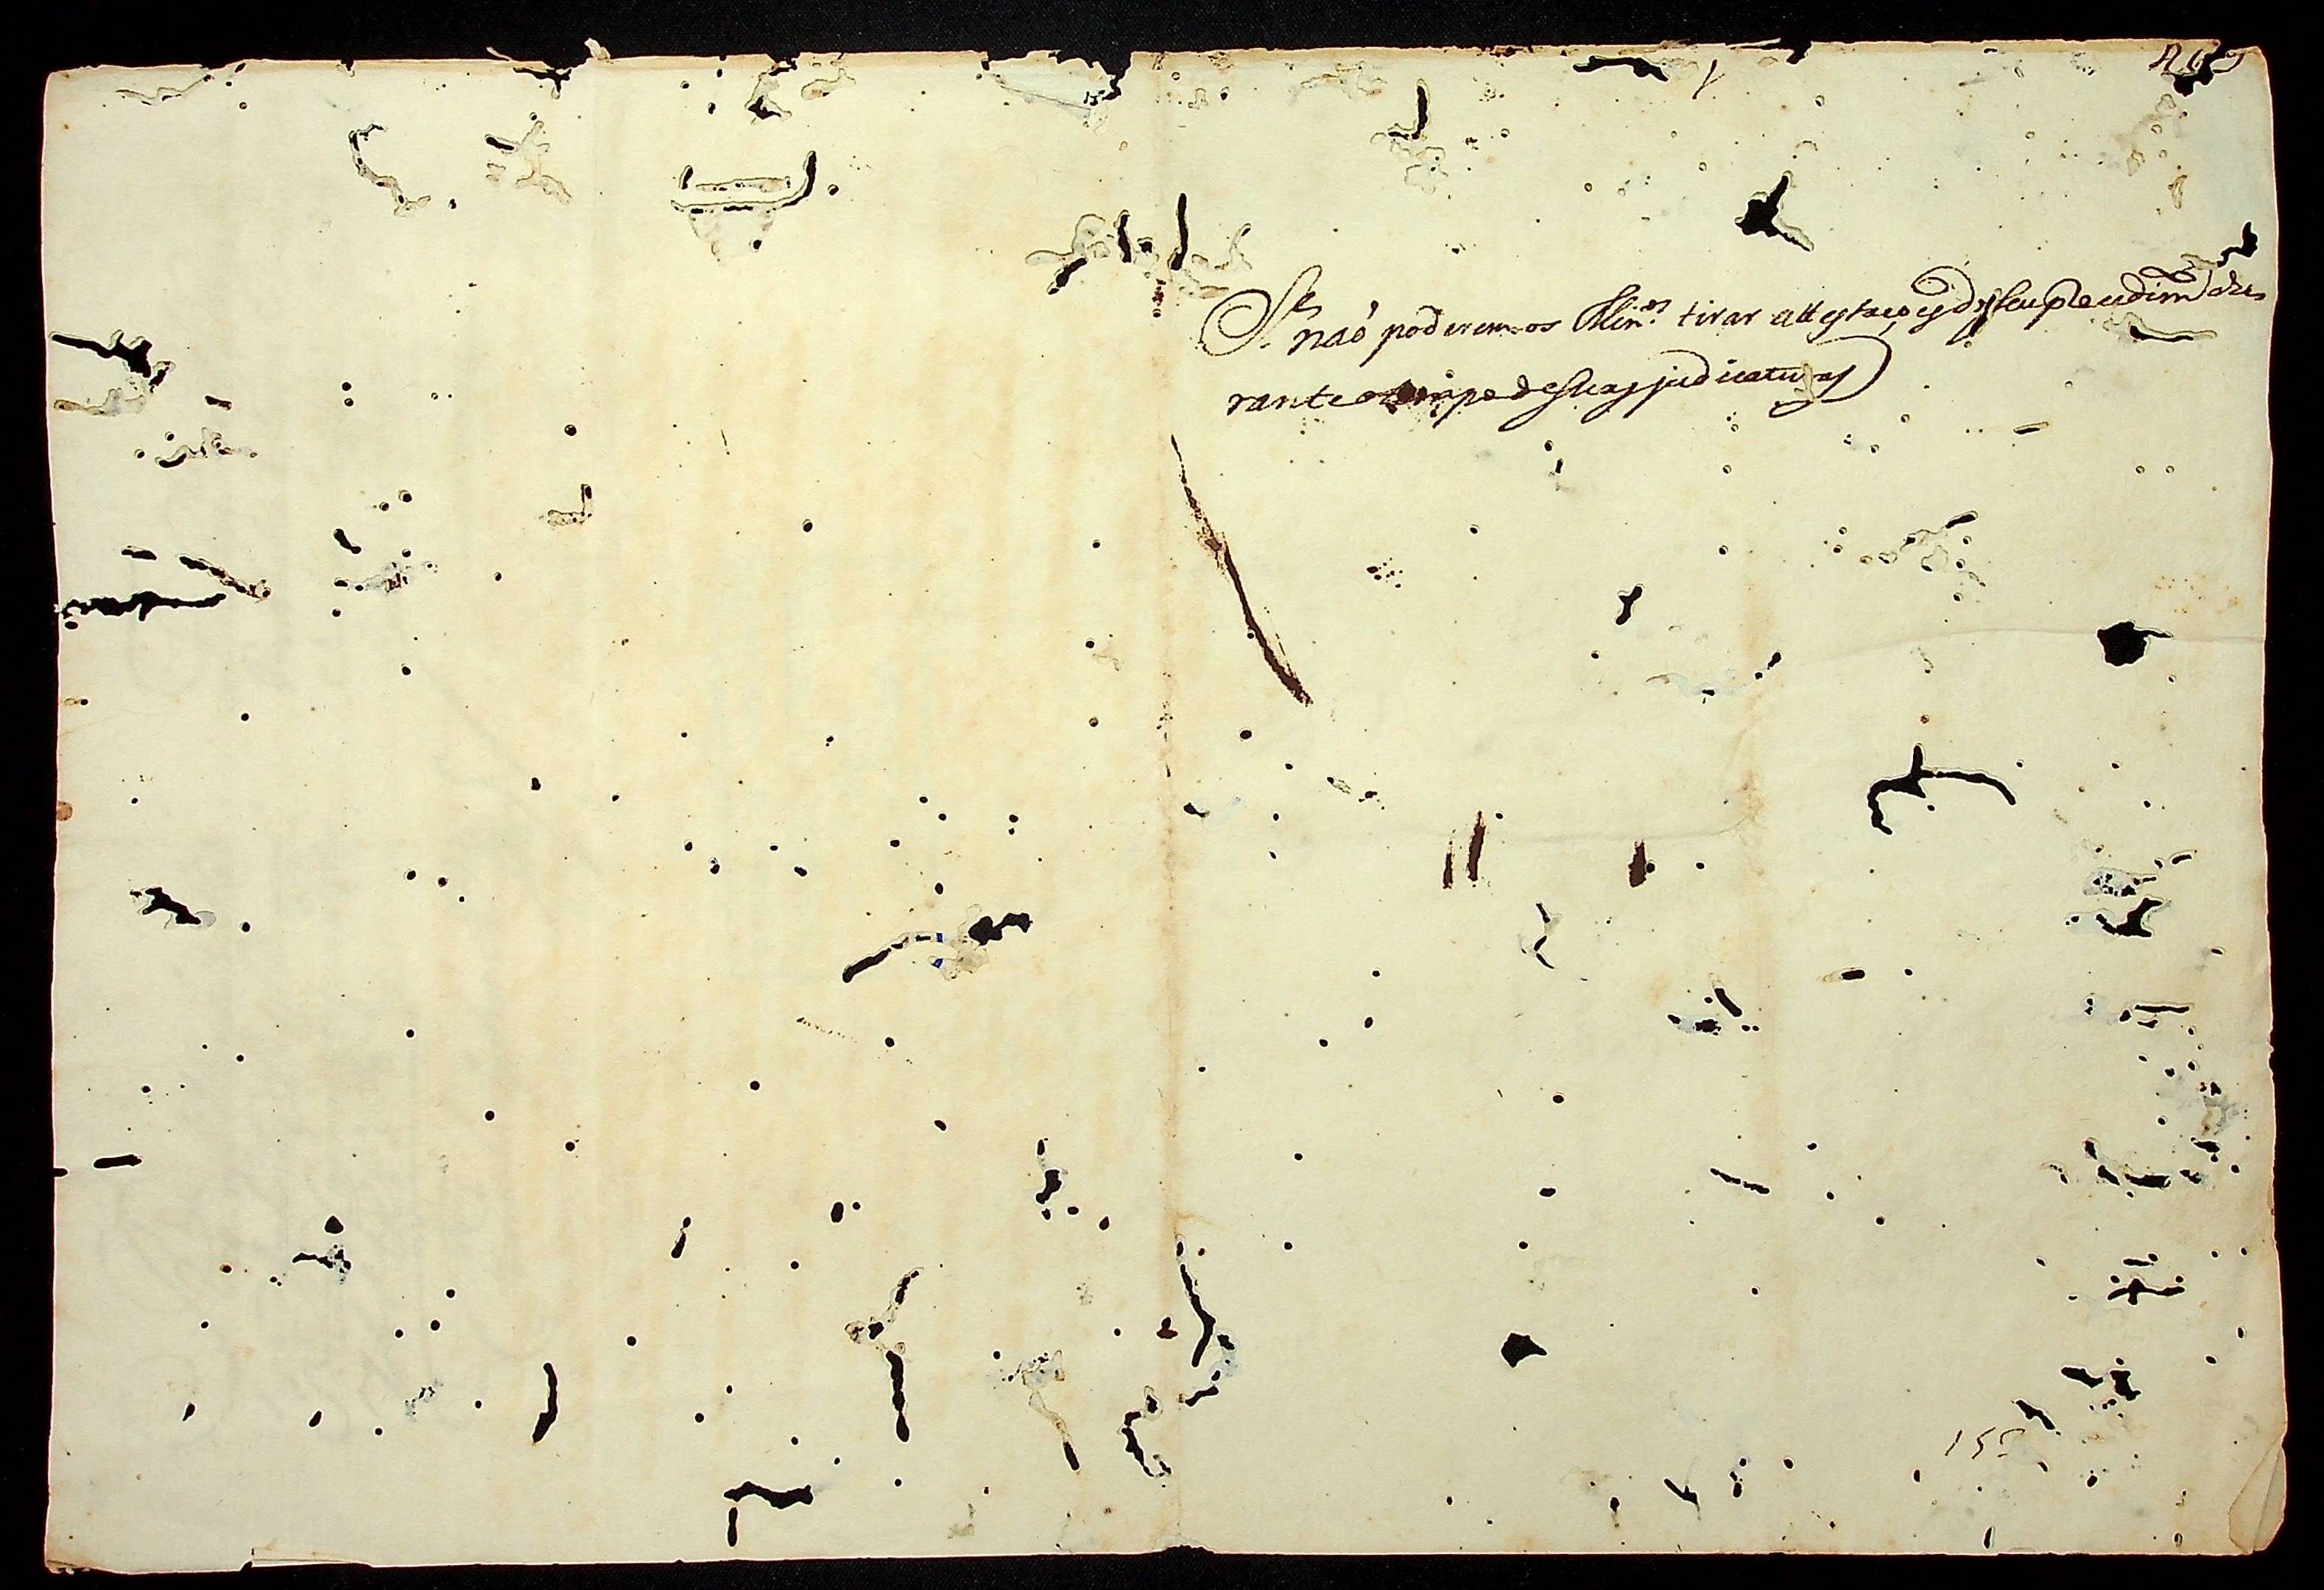 Sr não poderem os Minos tirar attestaçoens de seu procedimto du
rante o tempo de suas judicaturas
155